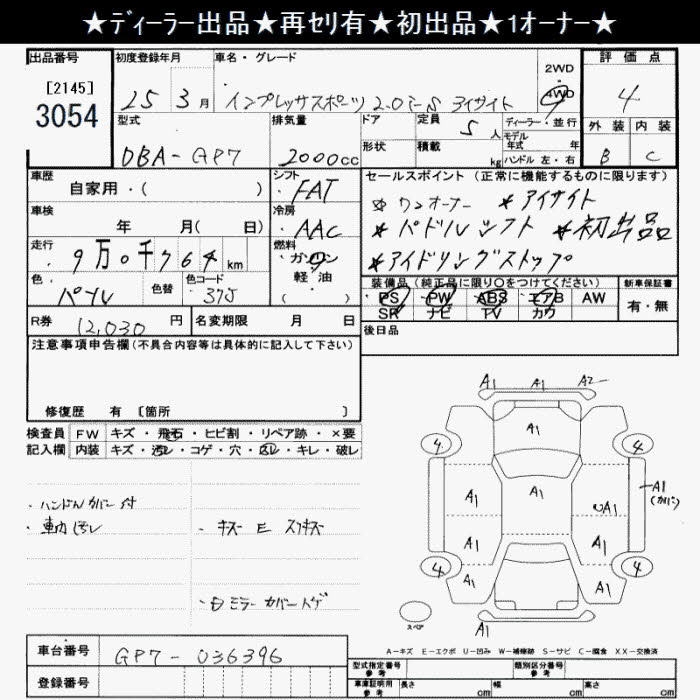 ★ディーラー出品★再セリ有★初出品★1オーナー★
出品番号 初度登録年月 車名・グレード 2WD ・ 4WD 評価点
[2145]
3054 25 3月 インプレッサスポーツ 2.0i-S アイサイト 4
型式 排気量 ドア 定員 5人 ディーラー・並行 外装 内装
DBA-GP7 2000cc 形状 積載 kg モデル年式 年 ハンドル 左・右 B C
車歴 シフト セールスポイント (正常に機能するものに限ります)
自家用・( ) FAT ワンオーナー ＊アイサイト
車検 冷房 ＊パドルシフト ＊初出品
年 月( 日) AAC ＊アイドリングストップ
走行 燃料
9万0千764km ガソリン
色 色替 色コード 軽油 装備品 (純正品に限り○をつけてください) 新車保証書
パール 375 ( ) PS PW ABS エアB AW 有・無
SR ナビ TV カワ
R券 12,030円 名変期限 月 日 後日品
注意事項申告欄 (不具合内容等は具体的に記入して下さい)
修復歴 有 [箇所 ]
検査員 FW キズ・飛石・ヒビ割・リペア跡・×要
記入欄 内装 キズ・汚れ・コゲ・穴・凹レ・キレ・破レ
A1 A1 A2
A1
4 4
A1 A1 A1 A1 (カバー)
・ハンドルカバー付
・車内汚れ ・キズ E スリキズ
A1 A1
4 4
A1 A1
・ミラーカバーハゲ
スペア A1
A-キズ E-エクボ U-凹み W-補修跡 S-サビ C-腐食 XX-交換済
車台番号 GP7-036396 型式指定番号 参考 類別区分番号 参考
登録番号 車庫証明用 参考 長さ cm 幅 cm 高さ cm